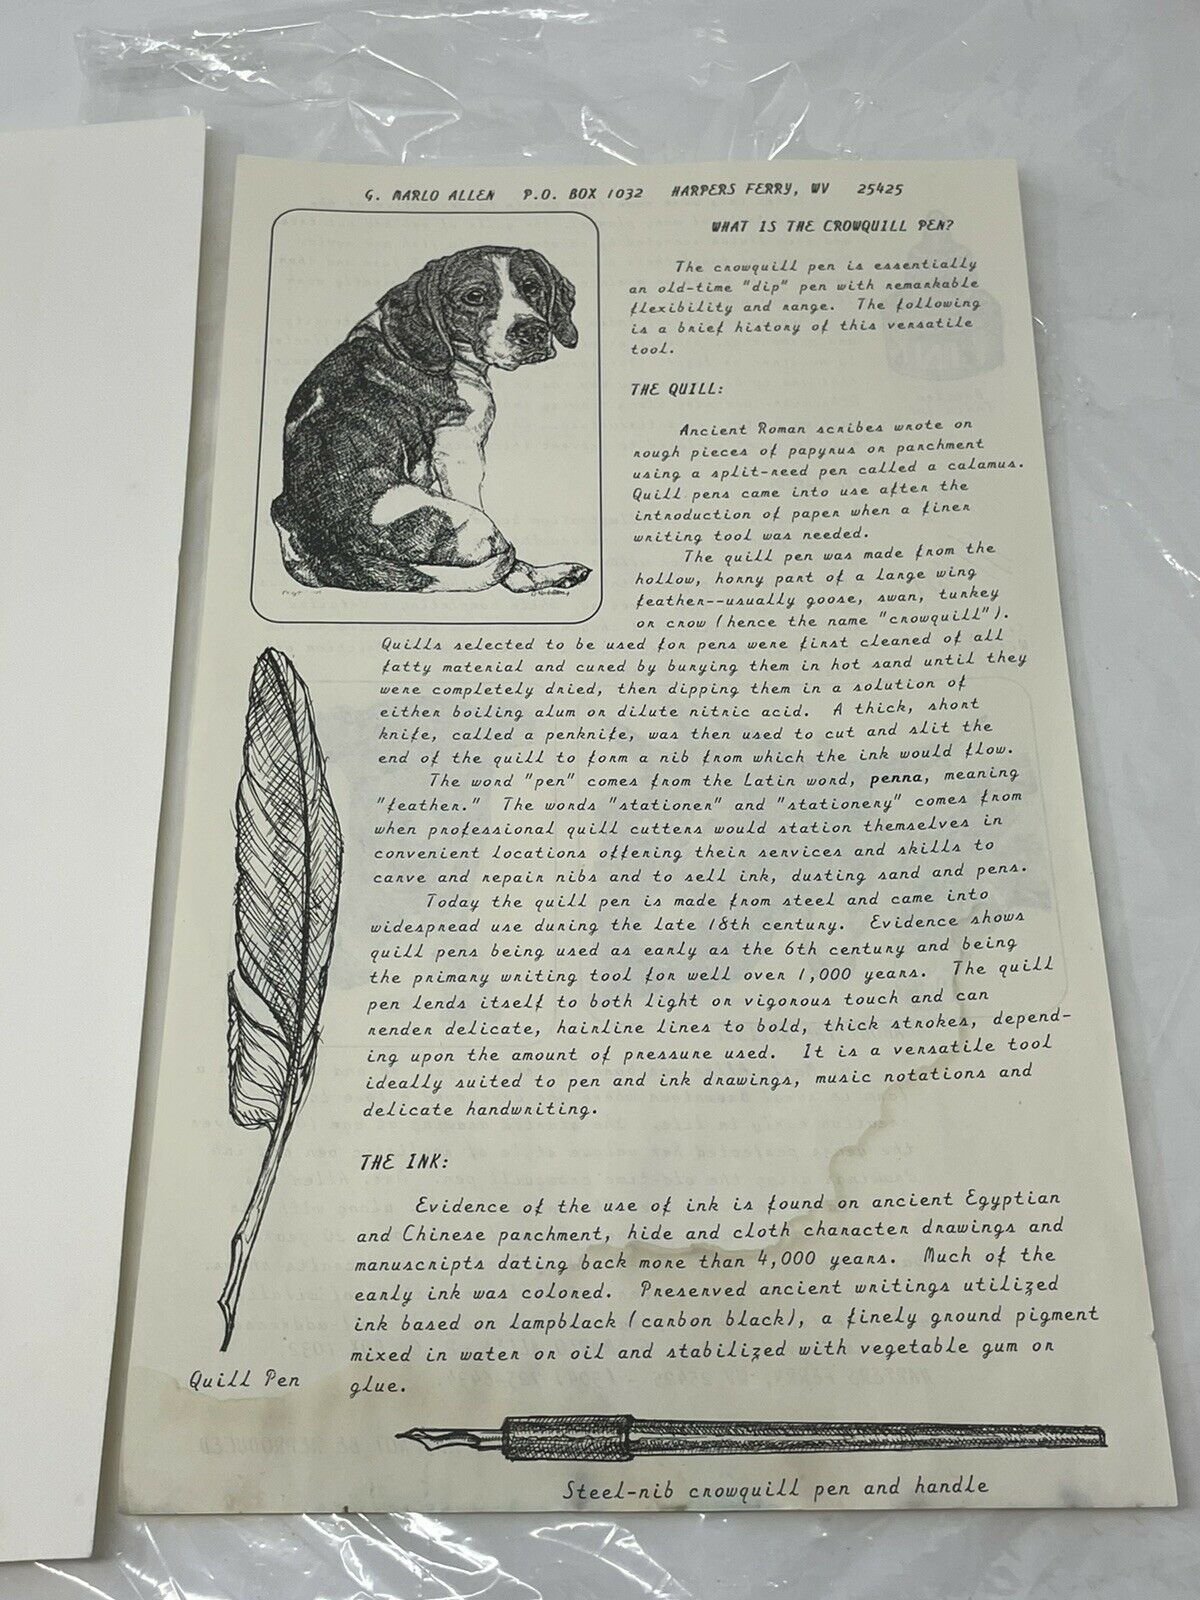 G. MARLO ALLEN P.O. BOX 1032 HARPERS FERRY, WV 25425
WHAT IS THE CROWQUILL PEN?
The crowquill pen is essentially
an old-time "dip" pen with remarkable
flexibility and range. The following
is a brief history of this versatile
tool.
THE QUILL:
Ancient Roman scribes wrote on
rough pieces of papyrus or parchment
using a split-reed pen called a calamus.
Quill pens came into use after the
introduction of paper when a finer
writing tool was needed.
The quill pen was made from the
hollow, horny part of a large wing
feather--usually goose, swan, turkey
or crow (hence the name "crowquill").
Quills selected to be used for pens were first cleaned of all
fatty material and cured by burying them in hot sand until they
were completely dried, then dipping them in a solution of
either boiling alum or dilute nitric acid. A thick, short
knife, called a penknife, was then used to cut and slit the
end of the quill to form a nib from which the ink would flow.
The word "pen" comes from the Latin word, penna, meaning
"feather." The words "stationer" and "stationery" comes from
when professional quill cutters would station themselves in
convenient locations offering their services and skills to
carve and repair nibs and to sell ink, dusting sand and pens.
Today the quill pen is made from steel and came into
widespread use during the late 18th century. Evidence shows
quill pens being used as early as the 6th century and being
the primary writing tool for well over 1,000 years. The quill
pen lends itself to both light or vigorous touch and can
render delicate, hairline lines to bold, thick strokes, depend-
ing upon the amount of pressure used. It is a versatile tool
ideally suited to pen and ink drawings, music notations and
delicate handwriting.
THE INK:
Evidence of the use of ink is found on ancient Egyptian
and Chinese parchment, hide and cloth character drawings and
manuscripts dating back more than 4,000 years. Much of the
early ink was colored. Preserved ancient writings utilized
ink based on lampblack (carbon black), a finely ground pigment
mixed in water or oil and stabilized with vegetable gum or
glue.
Quill Pen
Steel-nib crowquill pen and handle